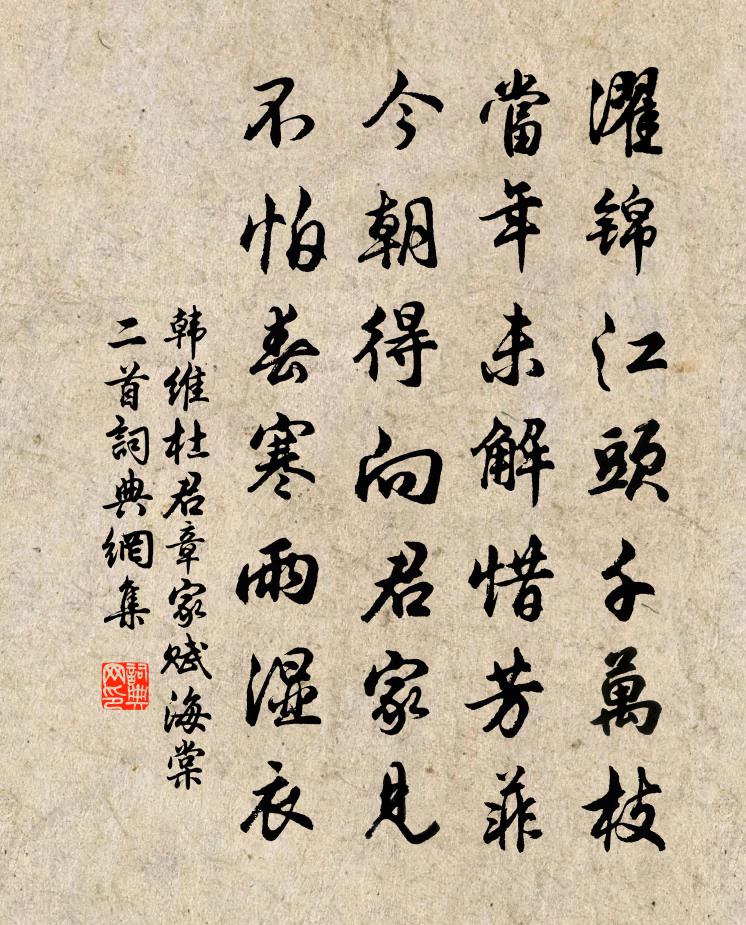 濯錦江頭千萬枝
當年未解惜芳菲
今朝得向君家見
不怕春寒雨濕衣
韩維杜君章家赋海棠
二首詞典網集
詞典网印